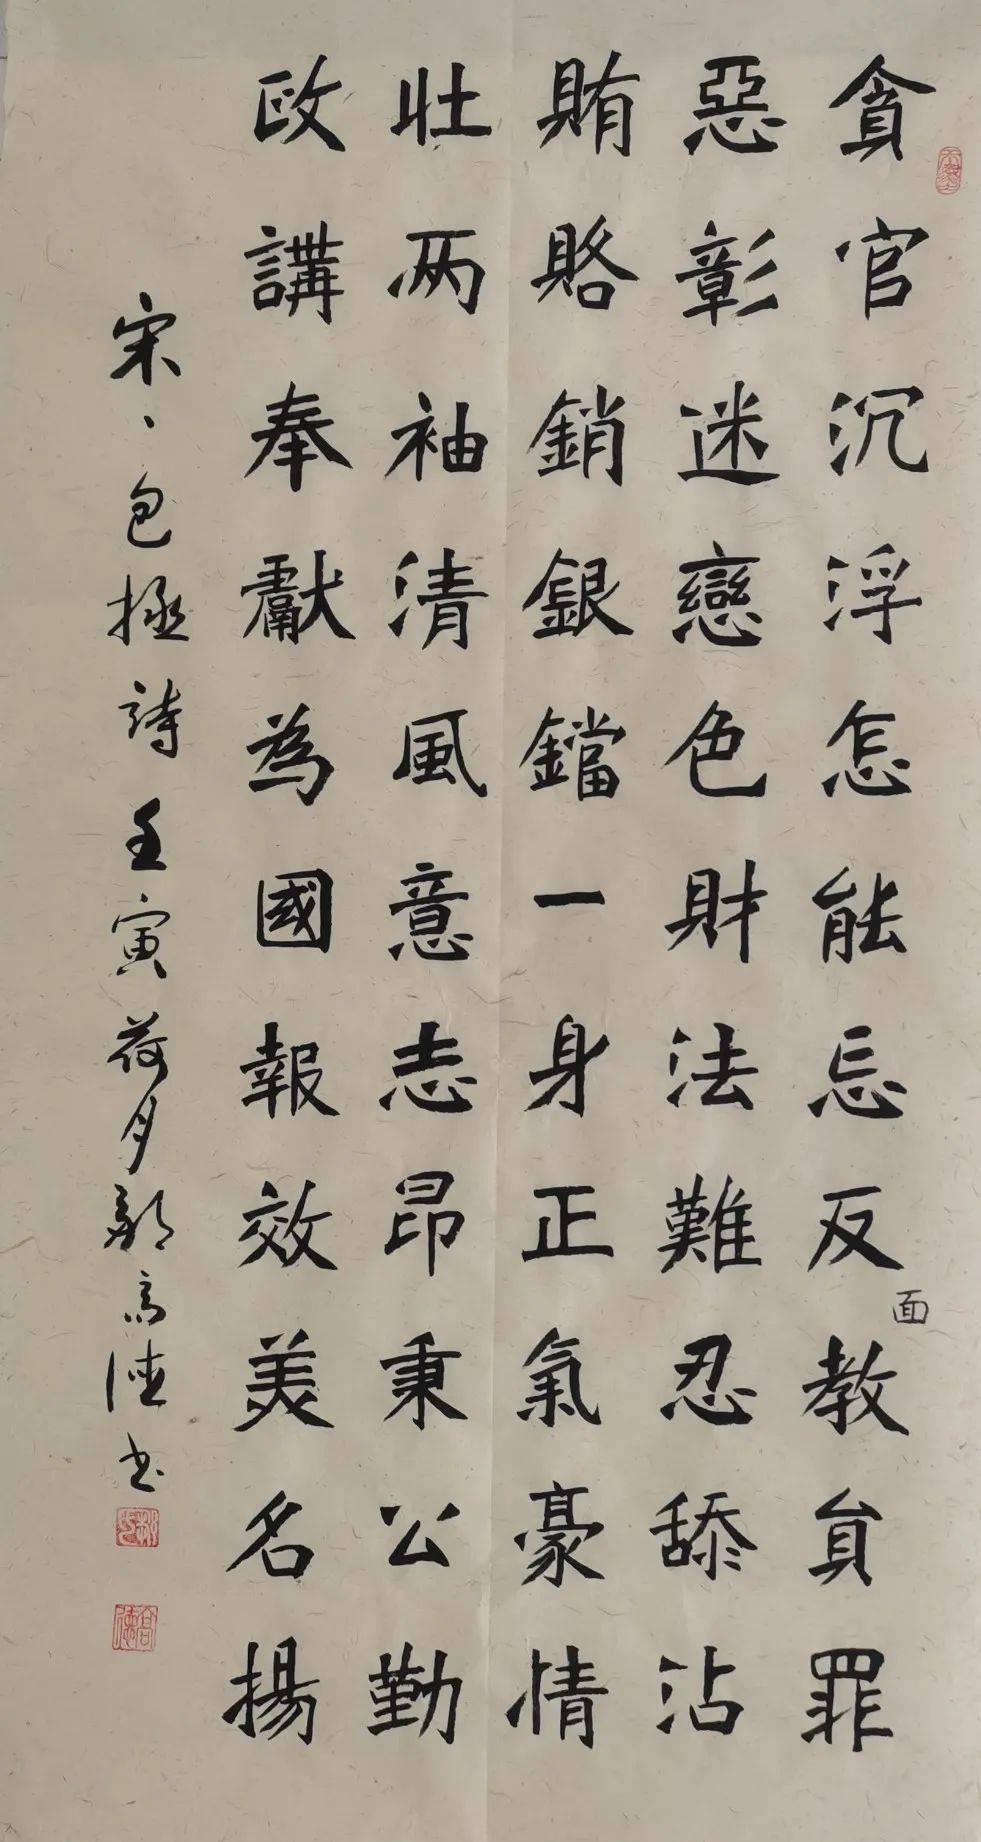 貪官沉浮怎能忘反面教員罪
惡彰迷戀色財法難忍舔沾
賄賂銷銀鐺一身正氣豪情
壯两袖清風意志昂秉公勤
政講奉獻為國報效美名揚
宋、包拯詩壬寅荷月郝高陸书